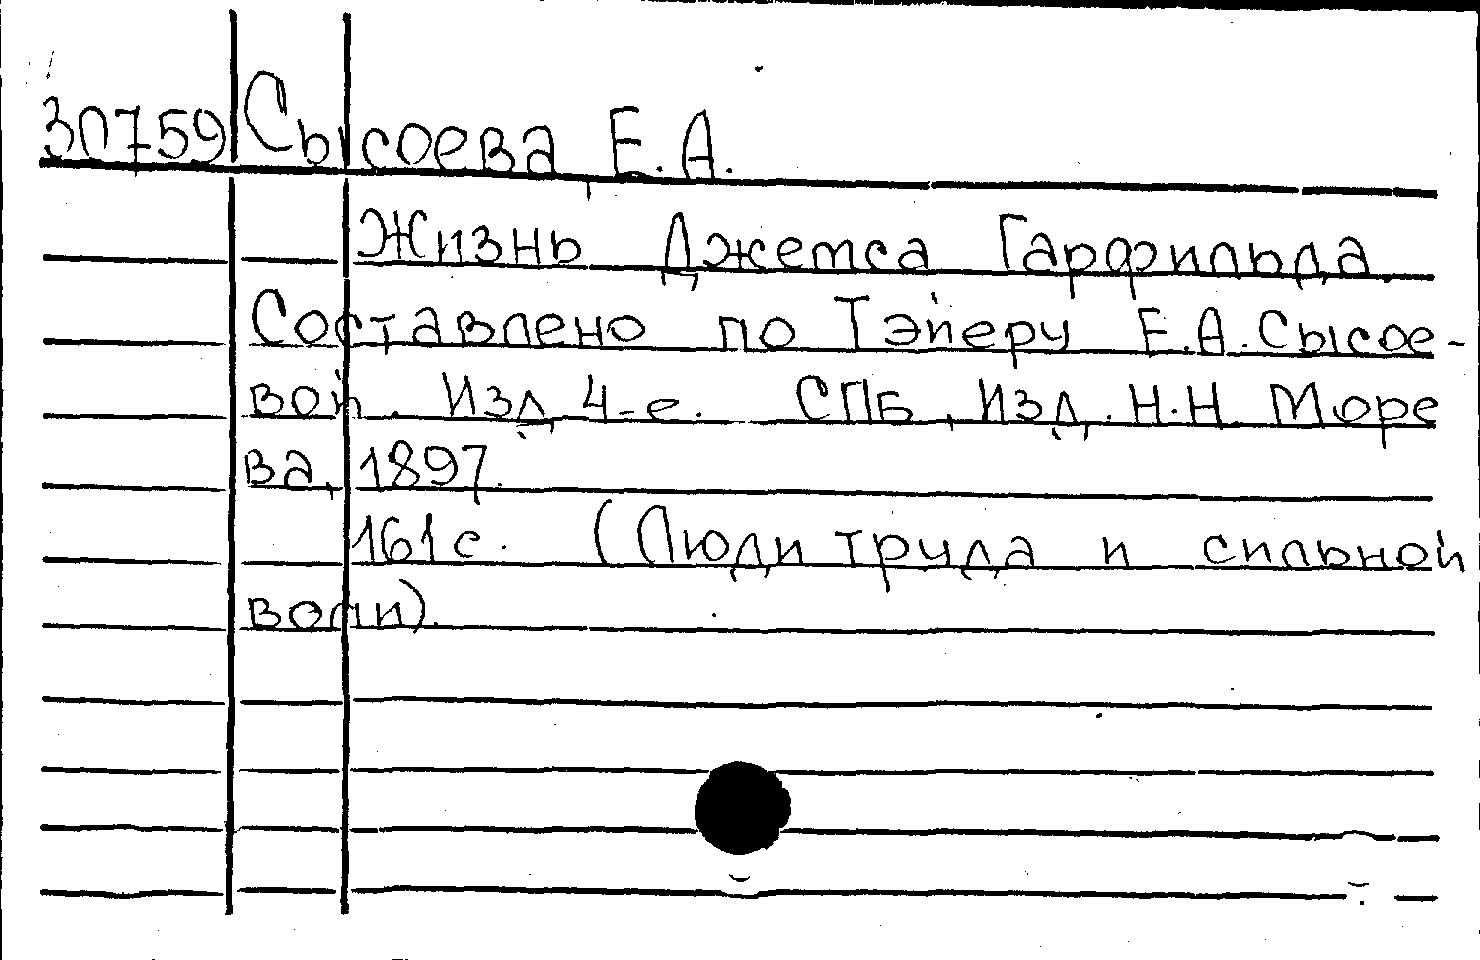 30759 Сысоева, Е.А.
Жизнь Джемса Гарфильда.
Составлено по Тэйеру Е.А.Сысое-
вой. Изд. 4-е. СПБ, Изд. Н.Н Море
ва, 1897.
161 с. (Люди труда и сильной
воли).